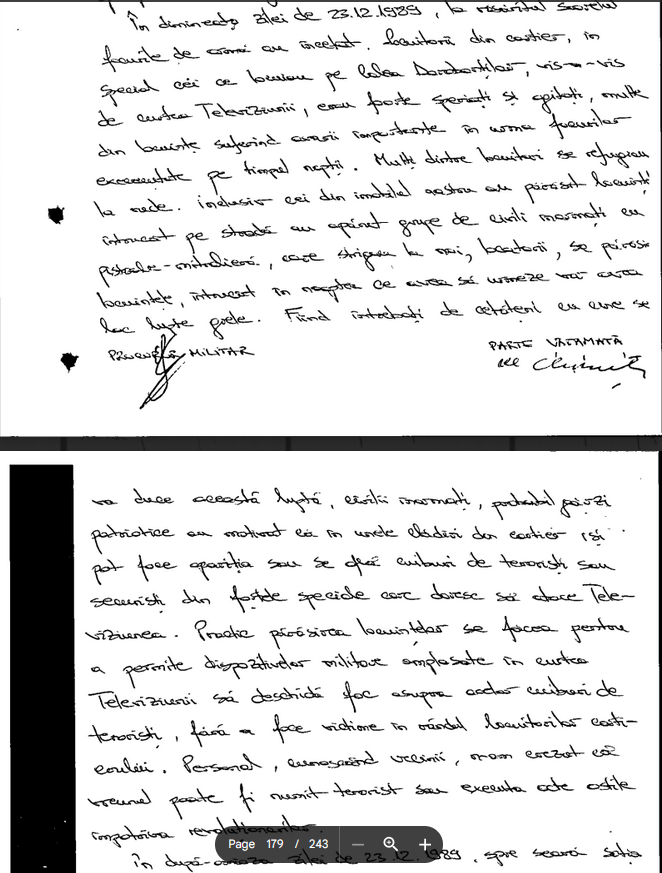 În dimineața zilei de 23.12.1989, la răsăritul soarelui
focurile de armă au încetat. Locuitorii din cartier, în
special cei ce locuiau pe Calea Dorobanților, vis-a-vis
de curtea Televiziunii, erau foarte speriați și agitați, multe
din locuințe suferind avarii importante în urma focurilor
executate pe timpul nopții. Mulți dintre locuitori se refugiau
la rude. Inclusiv cei din imobilul nostru au părăsit locuința
întrucât pe stradă au apărut grupe de civili înarmați cu
pistoale-mitralieră, care strigau la noi, locatarii, să părăsim
locuințele, întrucât în noaptea ce avea să urmeze vor avea
loc lupte grele. Fiind întrebați de cetățeni cu cine se
PROCUROR MILITAR
PARTE VĂTĂMATĂ
va duce această luptă, civilii înarmați, probabil gărzi
patriotice au motivat că în unele clădiri din cartier își
pot face apariția sau se află cuiburi de teroriști sau
securiști din forțele speciale care doresc să atace Tele-
viziunea. Practic părăsirea locuințelor se făcea pentru
a permite dispozitivelor militare amplasate în curtea
Televiziunii să deschidă foc asupra acelor cuiburi de
teroriști, fără a face victime în rândul locuitorilor carti-
erului. Personal, cunoscând vecinii, n-am crezut că
vreunul poate fi numit terorist sau executa acte ostile
împotriva revoluționarilor.
În după-amiaza zilei de 23.12.1989, spre seară soția
Page 179 / 243